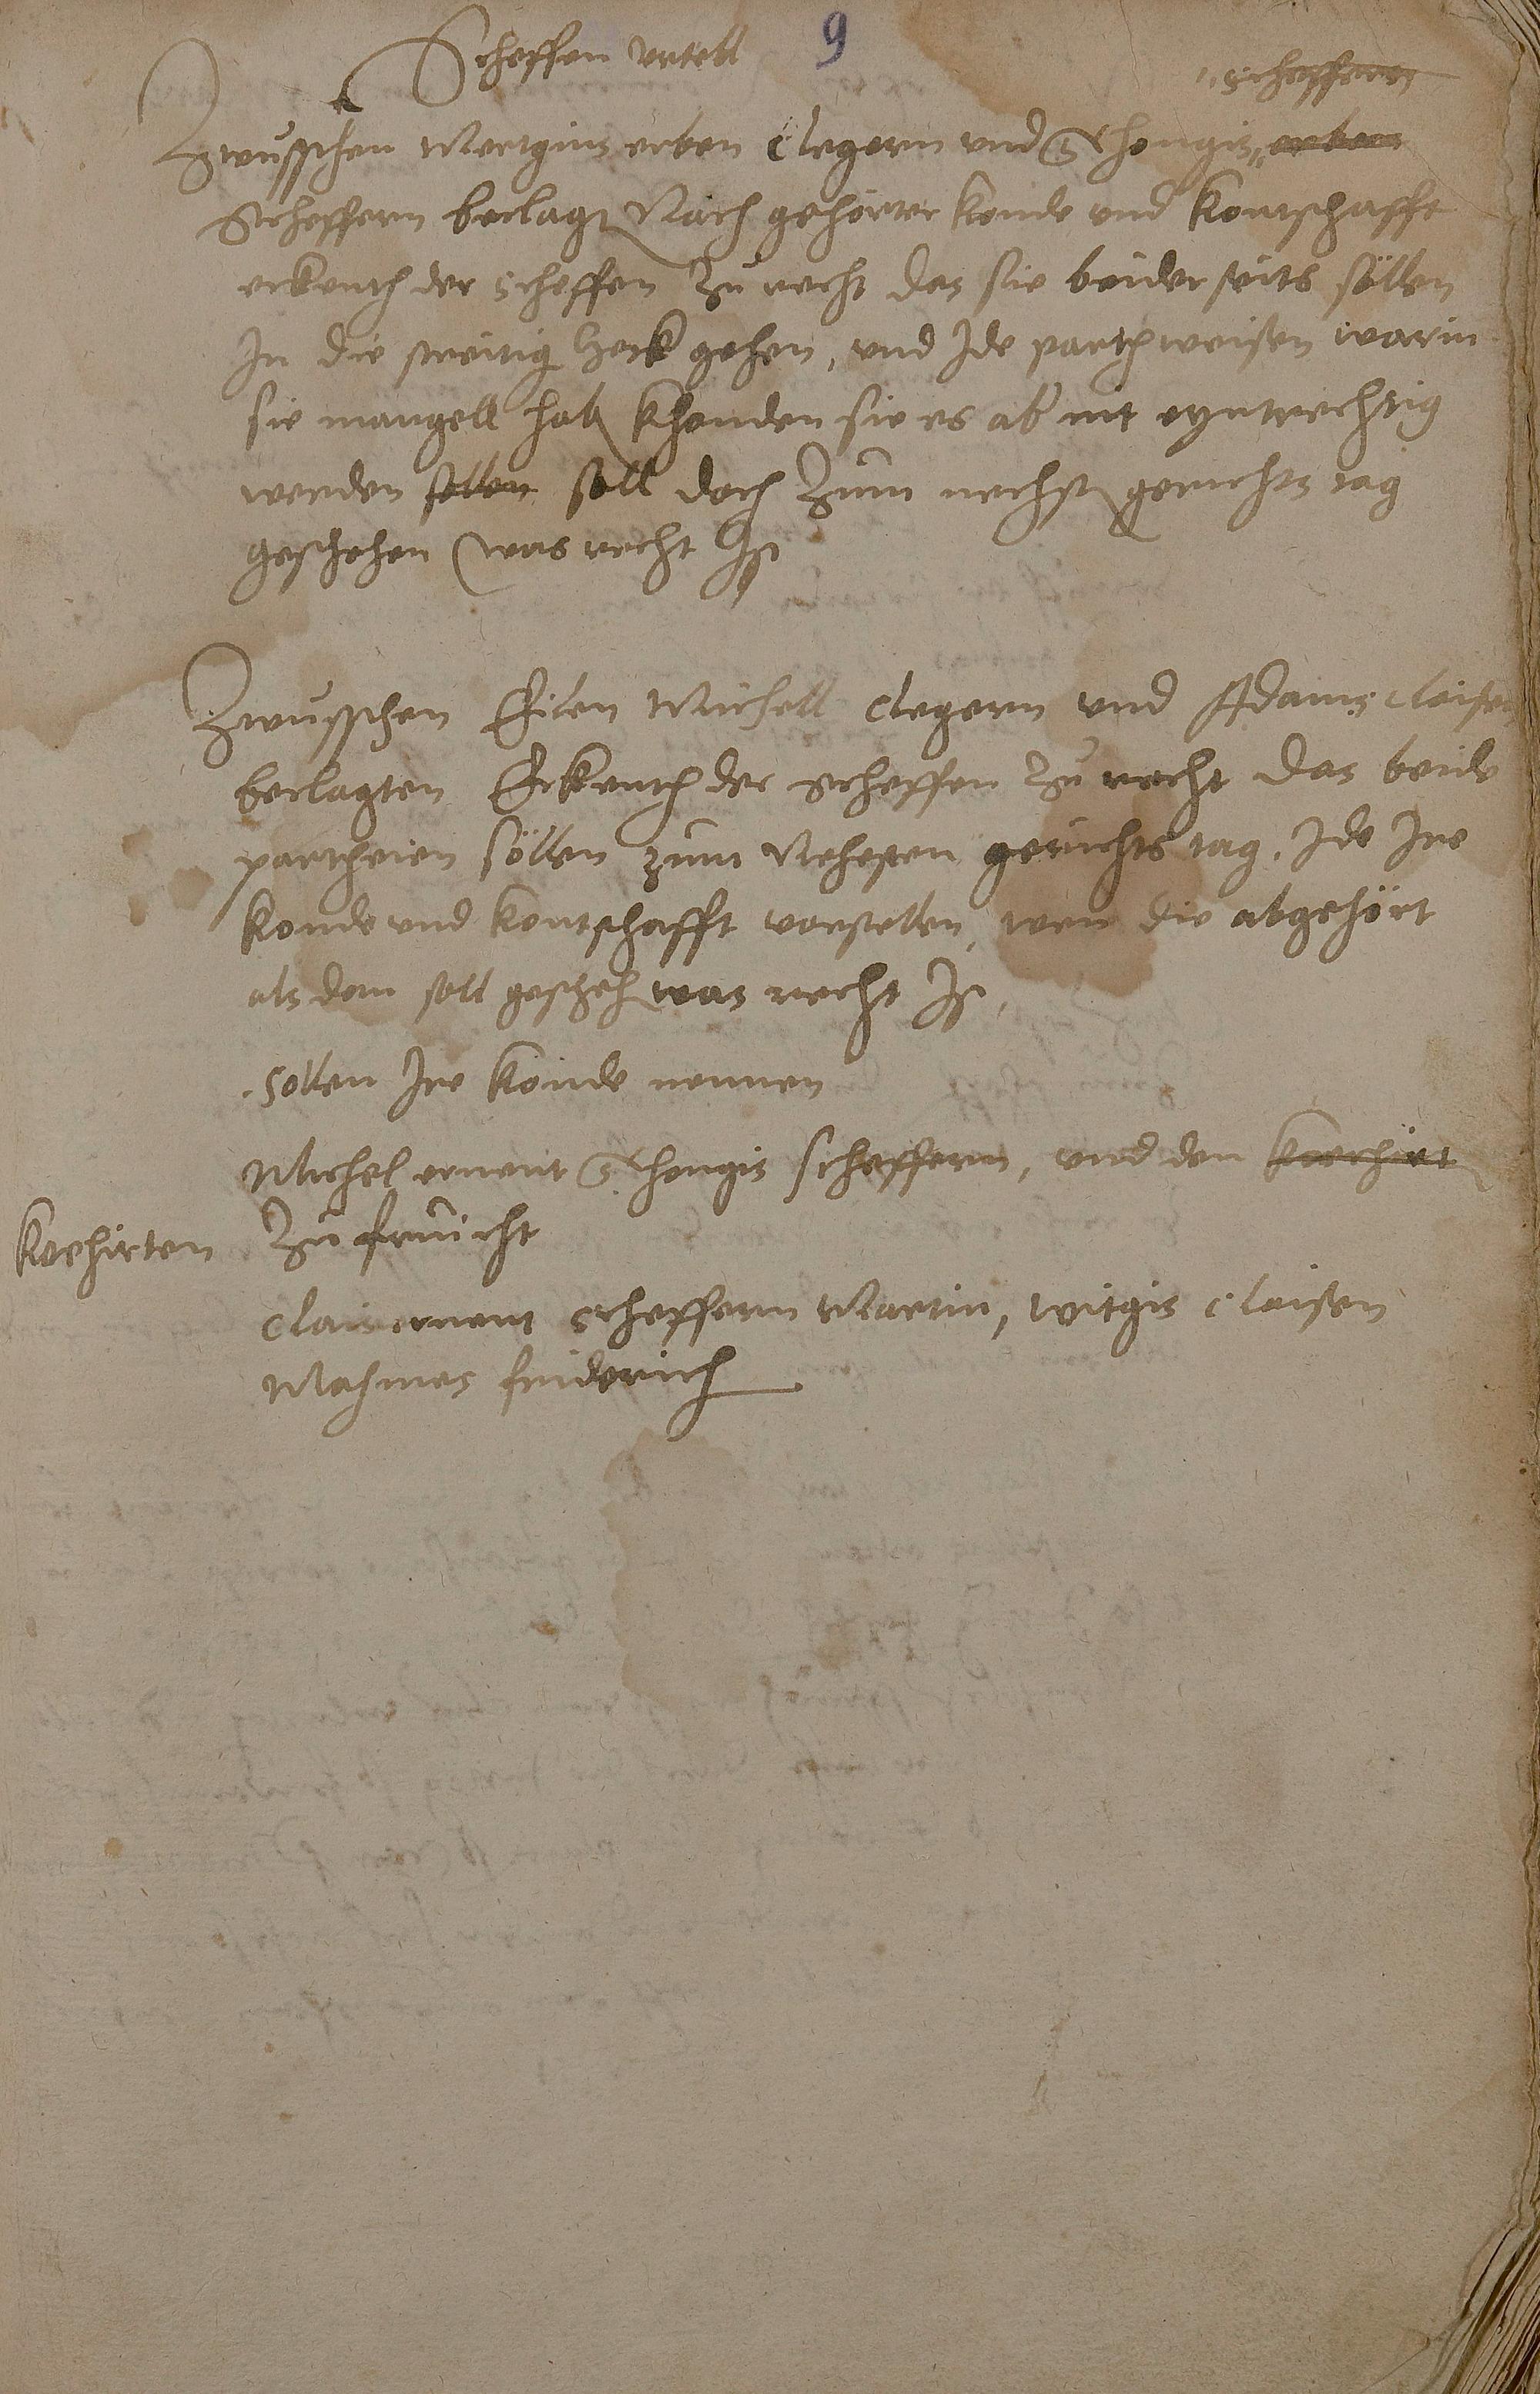 Scheffen urtell 9
scheffern
Zwusschen Mertgins erben clegern und Thongis erben
Scheffern beclagt Nach gehörter konde und kontschafft
erkenth der scheffen zu recht das sie beiderseits söllen
In die streitig heck gehen, und Ide parth weisen warin
sie mangell hab khonden sie es ab nit eyntrechtig
werden sollen soll doch zum nechst gerichts tag
geschehen was recht Ist
Zwusschen Eilen Michell clegern und Adams claisen
beclagten Erkenth der scheffen zu recht das beide
partheien söllen zum Nehesten gerichts tag. Ide Ire
konde und kontschafft vorstellen, wen die abgehört
als dan soll gescheh was recht Ist,
Sollen Ire konde nennen
Michel ernent Thongis scheffern, und den
koehirten zu
Clais ernent scheffern Martin, witgis claisen
friderich